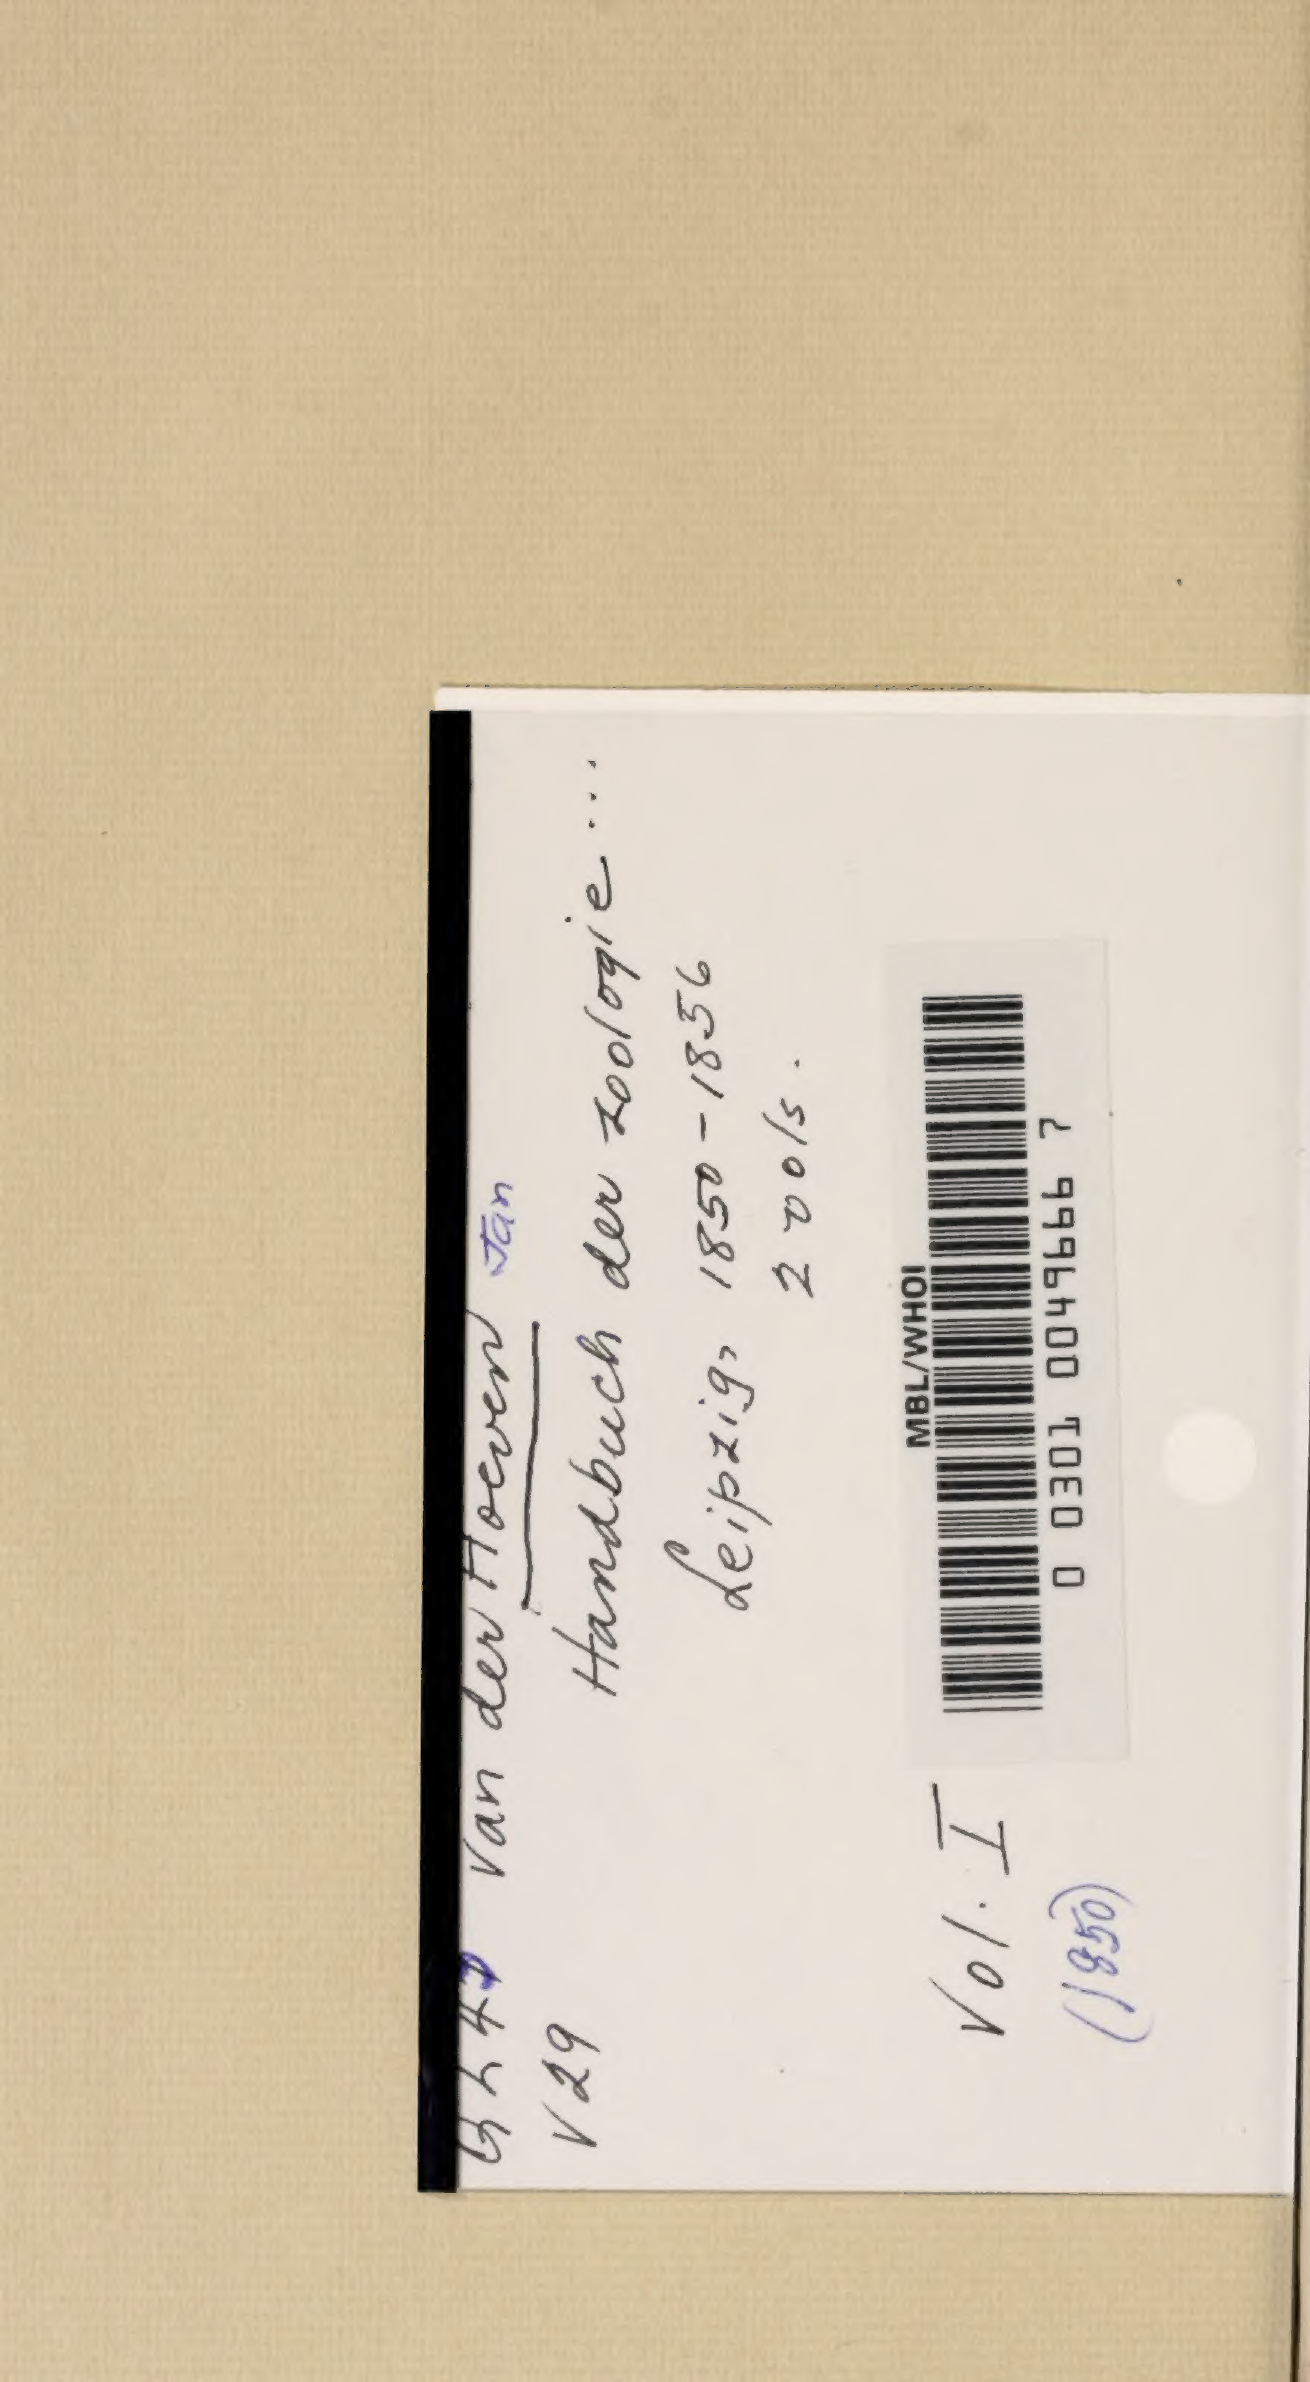 QL47 Van der Hoeven Jan
V29
Handbuch der zoologie...
Leipzig, 1850-1856
2 vols.
MBL/WHOI
0 0301 0049666 7
Vol. I
(1850)